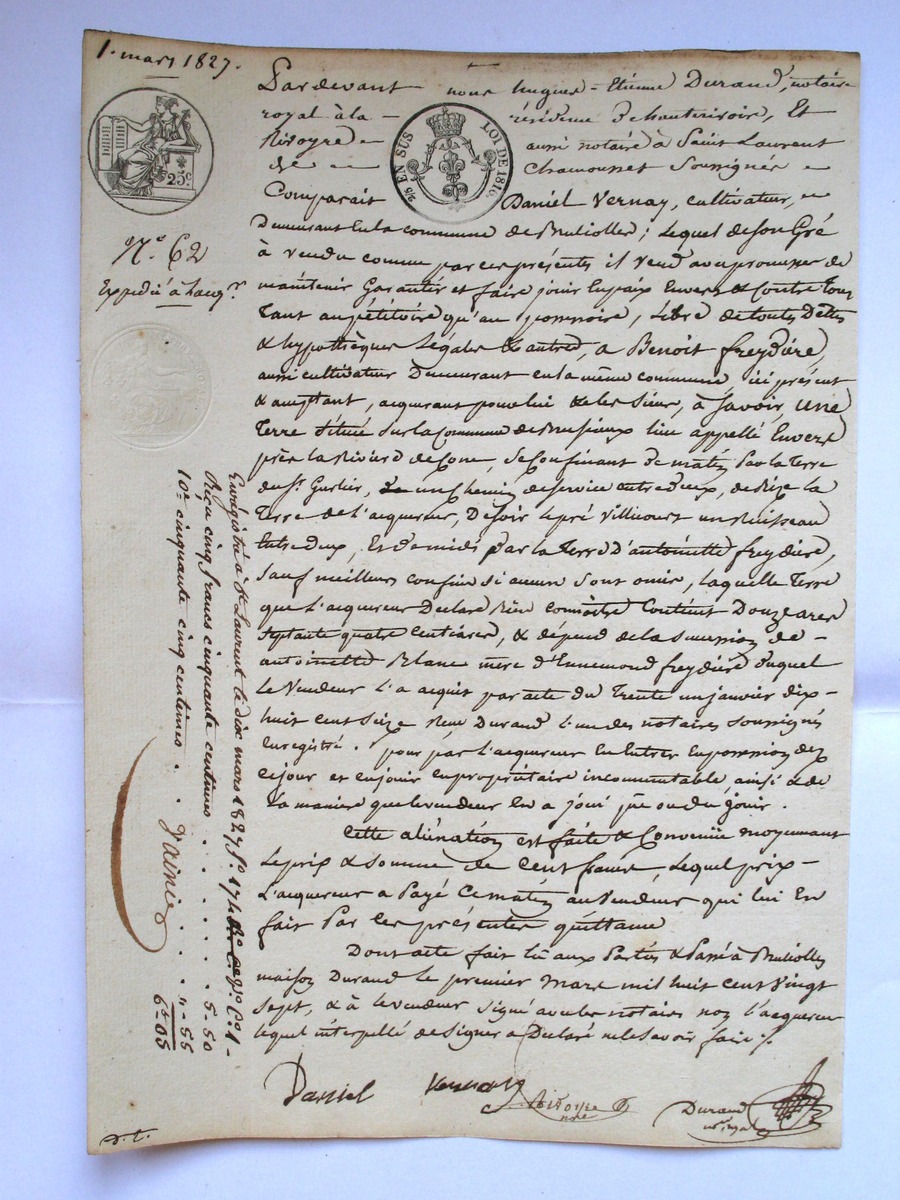 1. mars 1827.
Pardevant nous hugues - Etienne Durand, notaire
royal à la résidence D'hauterivoire, Et
Rivoyre aussi notaire à Saint Laurent
de Chamousset Soussignés
Comparait Daniel Vernay, cultivateur,
Demeurant En la commune de Brullolles; Lequel de son Gré
à vendu comme par ces présents il vend avec promesse de
maintenir Garantir et faire jouir En paix Envers & Contre Tous
Tant au pétitoire qu'au possessoire, Libre de toute Dettes
& hypothèques Légales & autres, a Benoit freydiére,
aussi cultivateur Demeurant en la même commune ici présent
& acceptant, acquerant pour lui & les siens, à Savoir une
Terre Située Sur la Commune de lieu appellé Envers
près la Rivière de Cone, Se Confinant De matin Par la Terre
du Sr. un Chemin de service entre deux, de Bize la
Terre de L'acquereur, De soir Le pré Villicourt un Ruisseau
Entre deux, Et De midi par la Terre D'antoinette freydiére,
Sauf meilleurs confins si aucun sont omis, laquelle Terre
que L'acquereur Declare Bien connoitre Contient Douze ares
Septante quatre Centiares, & dépend de la succession de
antoinette Blanc mere d'Ennemond freydiére Duquel
Le Vendeur L'a acquit par acte du Trente un janvier dix-
huit cent Seize Reçu Durand L'un des notaires soussignés
Enregistré. pour par L'acquereur En Entrer En possession dez
Ce jour et en jouir en propriétaire incommutable, ainsi & de
La maniere que le vendeur En a joui pu ou du jouir.
Cette aliénation est faite & Convenüe moyennant
Le prix & Somme de Cent francs, Lequel prix
L'acquereur a Payé Ce matin au Vendeur qui lui En
fait Par Ces présentes quittance
Dont acte fait Lu aux Parties & Passé à Brullolles
maison Durand Le premier Mars mil huit cent Vingt
sept, & à le vendeur signé avec les notaires non l'acquereur
lequel interpellé de signer a Déclaré ne le savoir faire
Daniel Vernay
Rivoyre
nre
Durand
nre Royal
25c
2/5 EN SUS
LOI DE 1816.
N.° 62
Expédié à L'acqr.
Enregistré à St Laurent le dix mars 1827 f.° 174
Reçu cinq francs cinquante centimes . . . . . 5-50
10e cinquante cinq centimes . . . . "-55
6-05
d.t.